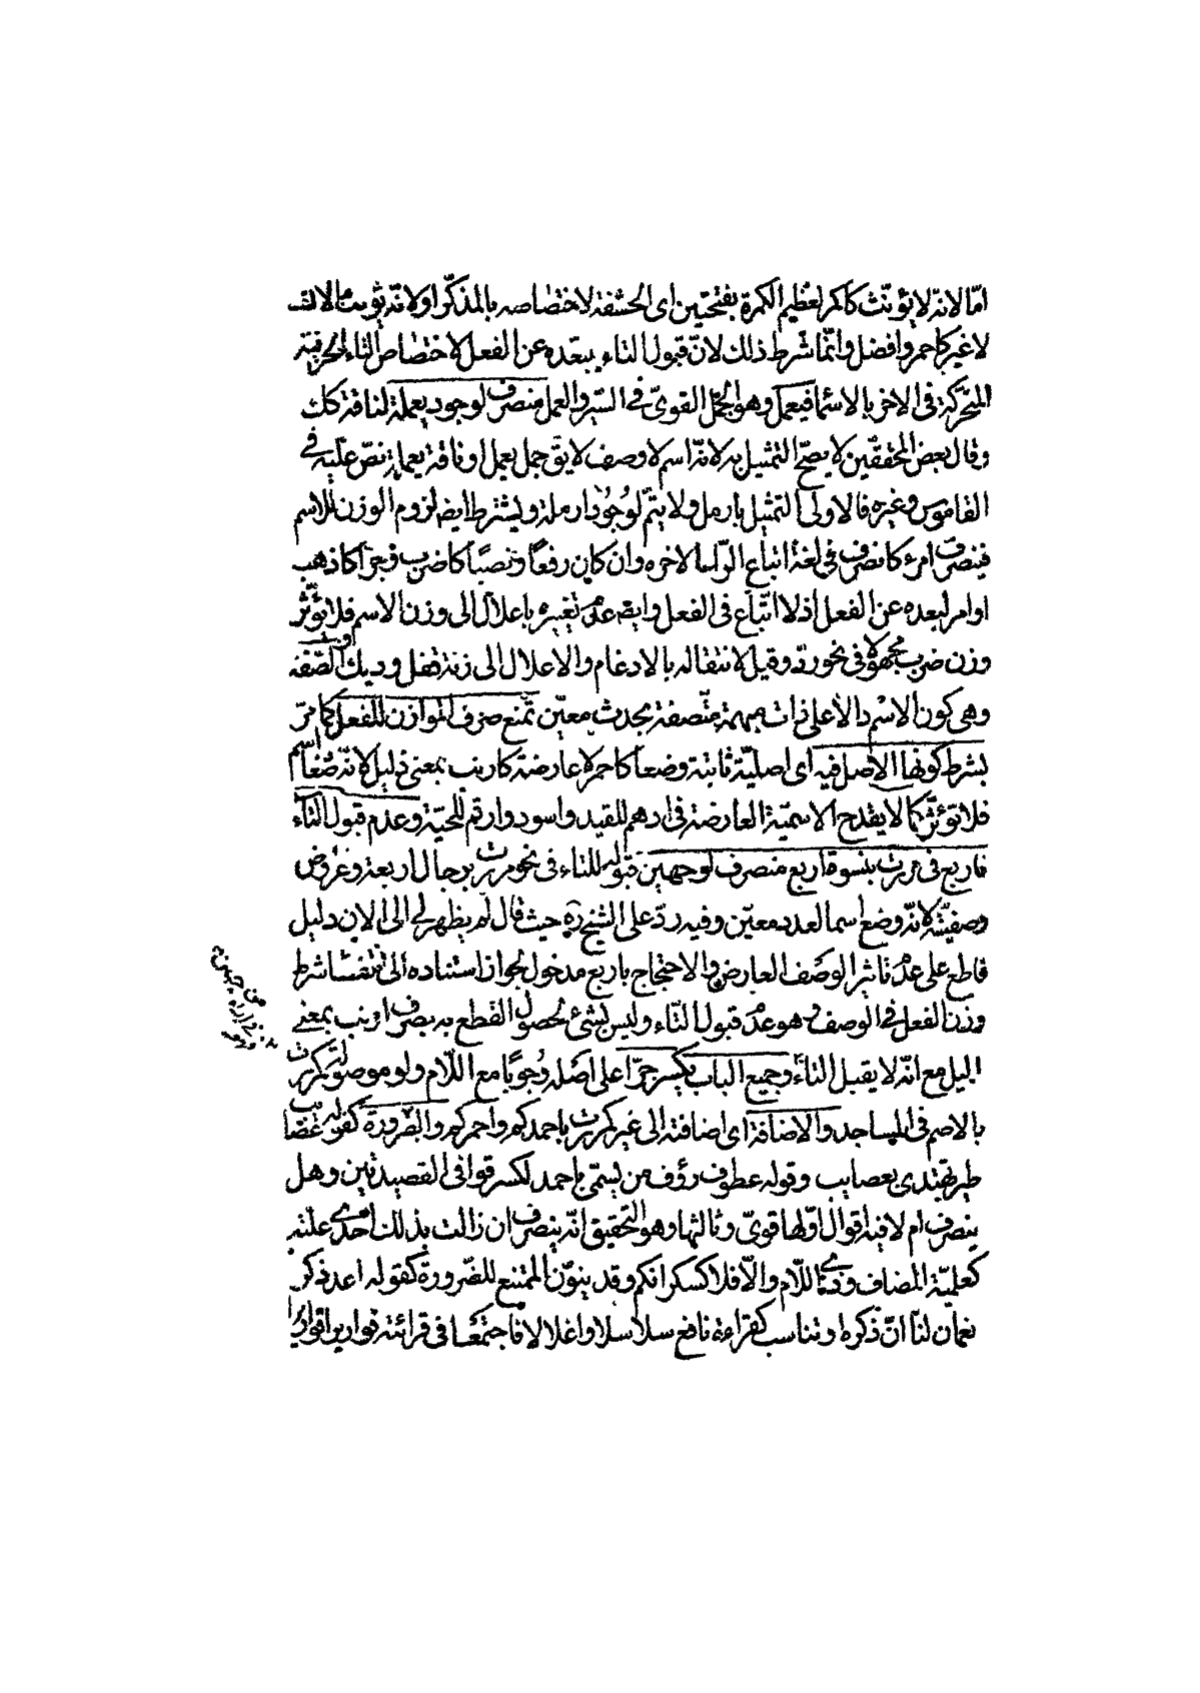 امّا لانّه لا يؤنّث كاكمر لعظيم الكمرة بفتحتين اى الحشفة لاختصاصه بالمذكّر او لانّه يؤنث بالالف
لا غير كاحمر وافضل وانّما شرط ذلك لانّ قبول التاء يبعّده عن الفعل لاختصاص التاء الحرفية
المتحرّكة فى الاخر بالاسماء فيعمل وهو الجمل القوىّ فى السّير والعمل منصرف لوجود يعملة لناقة كك
وقال بعض المحققين لا يصحّ التمثيل به لانّه اسم لا وصف لا يق جمل يعمل او ناقة يعملة نصّ عليه فى
القاموس وغيره فالاولى التمثيل بارمل ولا يتمّ لوجود ارملة ويشترط ايضا لزوم الوزن للاسم
فينصرف امرء كانصرف فى لغة اتباع الرّاء الاخره وان كان رفعًا ونصبًا كاضرب وجرّا كاذهب
اوامر لبعده عن الفعل اذ لا اتّباع فى الفعل وايضا عدم تغييره باعلال الى وزن الاسم فلا تؤثّر
وزن ضرب مجهولا فى نحو ردّ وقيل لانتقاله بالادغام والاعلال الى زنة قفل وديك الصّفة
وهى كون الاسم دالا على ذات مبهمة متّصفة بحدث معيّن تمنع صرف الموازن للفعل كما مرّ
بشرط كونها الاصل فيه اى اصليّة ثابتة وضعا كاحمر لا عارضة كارنب بمعنى ذليل لانّه وضعا اسم
فلا تؤثّر كما لا يقدح الاسميّة العارضة فى ادهم للقيد واسود وارقم للحيّة وعدم قبول التاء
فاربع فى مررت بنسوة اربع منصرف لوجهين قبوله للتاء فى نحو مررت برجال اربعة وعروض
وصفيّته لانّه وضع اسما لعدد معيّن وفيه ردّ على الشيخ ره حيث قال لم يظهر لى الى الان دليل
قاطع على عدم تاثير الوصف العارض والاحتجاج باربع مدخول لجواز استناده الى انتفاء شرط
وزن الفعل فى الوصف وهو عدم قبول التاء وليس بشئ لحصول القطع به بصرف ارنب بمعنى
ذليل مع انّه لا يقبل التاء وجميع الباب يكسر جرّا على اصله وجوبًا مع اللّام ولو موصولة كمررت
بالاصم فى المساجد والاضافة اى اضافته الى غير كمررت باحمدكم واحمركم والضرورة كقوله عصائب
طير تهتدى بعصايب وقوله عطوف رؤف من يسمّى باحمد لكسر قوافى القصيدتين وهل
ينصرف ام لا فيه اقوال اوّلها قوىّ وثالثها وهو التحقيق انّه ينصرف ان زالت بذلك احدى علتيه
كعلميّة المضاف وذى اللّام والّا فلا كسكرانكم وقد ينوّن الممتنع للضّرورة كقوله اعد ذكر
نعمان لنا انّ ذكره او تناسب كقراءة نافع سلاسلا واغلالا فاجتمعا فى قرائته قواريرا قواريرا